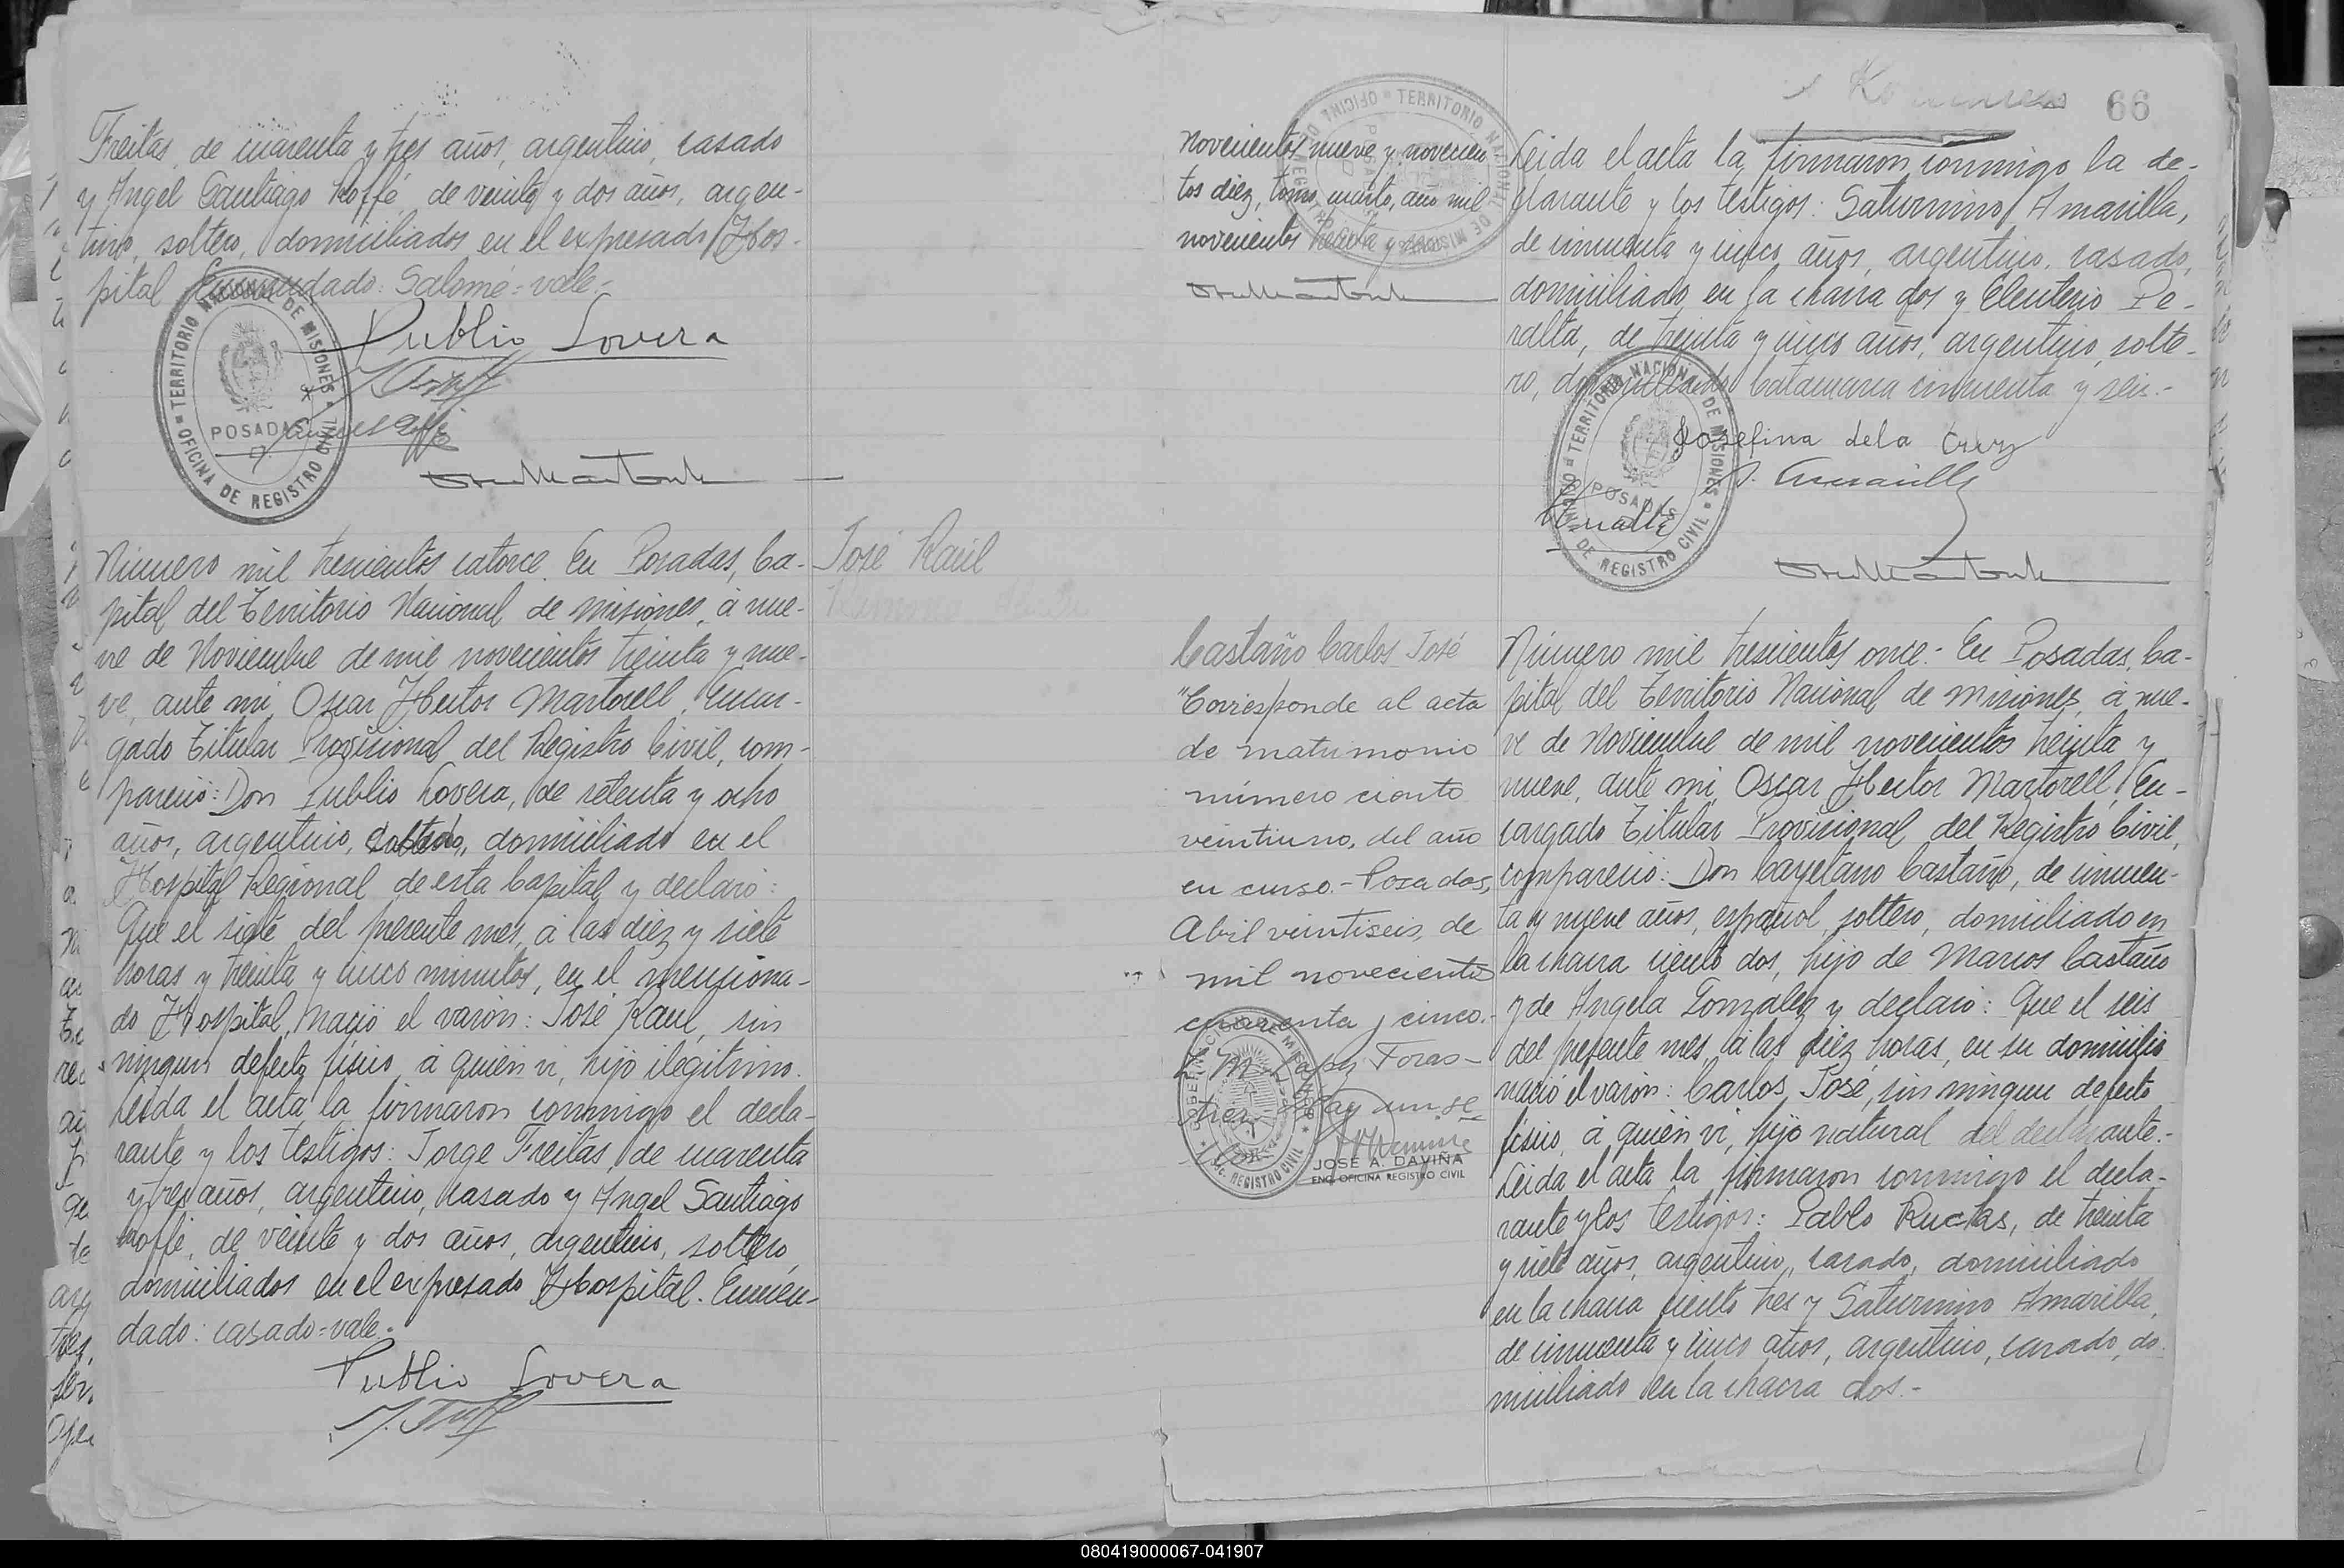 Freitas, de cuarenta y tres años, argentino, casado
y Angel Santiago Koffé, de veinte y dos años, argen-
tino, soltero, domiciliados en el expresado Hos-
pital Enmendado: Salomé=vale.-
Publio Lovera
TERRITORIO NACIONAL DE MISIONES
POSADAS
OFICINA DE REGISTRO CIVIL
Número mil trescientos catorce. En Posadas, Ca-
pital del Territorio Nacional de Misiones, á nue-
ve de Noviembre de mil novecientos treinta y nue-
ve, ante mi, Oscar Hector Martorell, Encar-
gado Titular Provisional del Registro Civil, com-
pareció: Don Publio Lovera, de setenta y ocho
años, argentino, domiciliado en el
Hospital Regional de esta Capital y declaró:
Que el siete del presente mes, á las diez y siete
horas y treinta y cinco minutos, en el menciona-
do Hospital, nació el varón: José Raúl, sin
ningun defecto físico, á quién vi, hijo ilegítimo.
Leida el acta la firmaron conmigo el decla-
rante y los testigos: Jorge Freitas, de cuarenta
y tres años, argentino, casado y Angel Santiago
Koffé, de veinte y dos años, argentino, soltero,
domiciliados en el expresado Hospital. Enmen-
dado: casado=vale.-
Publio Lovera
José Raúl
66
novecientos nueve y novecien
tos diez, tomo cuarto, año mil
novecientos treinta y
Leida el acta la firmaron conmigo la de-
clarante y los testigos: Saturnino Amarilla,
de cincuenta y cinco años, argentino, casado,
domiciliado en la chacra dos y Eleuterio Pe-
ralta, de treinta y cinco años, argentino, solte-
ro, domiciliado Catamarca cincuenta y seis.-
Josefina dela Cruz
S. Amarilla
TERRITORIO NACIONAL DE MISIONES
POSADAS
OFICINA DE REGISTRO CIVIL
Castaño Carlos José
"Corresponde al acta
de matrimonio
número ciento
veintiuno, del año
en curso.- Posadas,
Abril veintiseis, de
mil novecientos
cuarenta y cinco.-
JOSE A. DAVIÑA
ENC. OFICINA REGISTRO CIVIL
Número mil trescientos once.- En Posadas, Ca-
pital del Territorio Nacional de Misiones, á nue-
ve de Noviembre de mil novecientos treinta y
nueve, ante mi, Oscar Hector Martorell, En-
cargado Titular Provisional del Registro Civil,
compareció: Don Cayetano Castaño, de cincuen-
ta y nueve años, español, soltero, domiciliado en
la chacra ciento dos, hijo de Marcos Castaño
y de Angela Gonzalez y declaró: Que el seis
del presente mes, á las diez horas, en su domicilio
nació el varón: Carlos José, sin ningun defecto
físico, á quién vi, hijo natural del declarante.-
Leida el acta la firmaron conmigo el decla-
rante y los testigos: Pablo Ructas, de treinta
y siete años, argentino, casado, domiciliado
en la chacra ciento tres y Saturnino Amarilla,
de cincuenta y cinco años, argentino, casado, do-
miciliado en la chacra dos.-
080419000067-041907